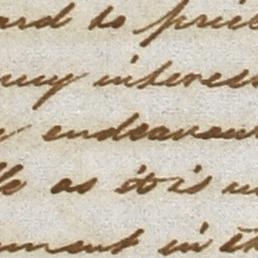 ard to price
my interess
endeavour
le as it is u
nment in th